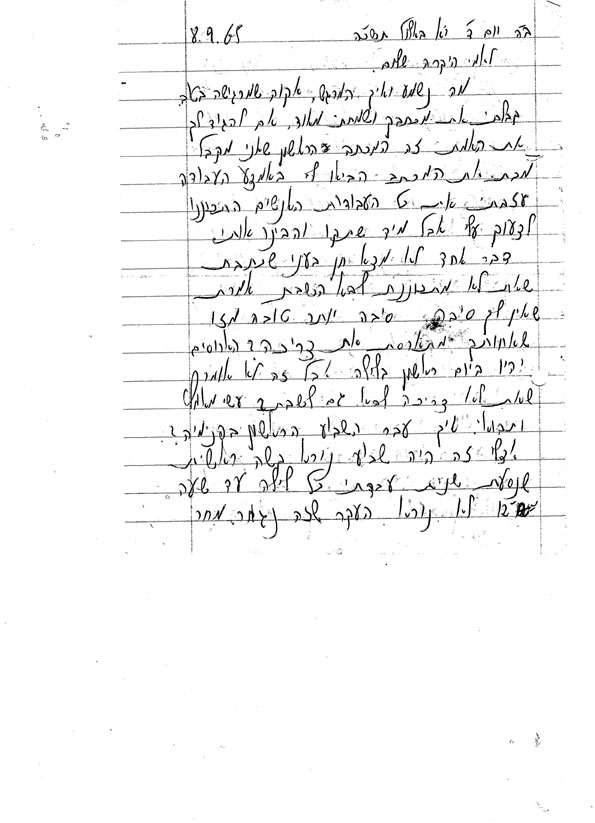 ב״ה יום ד׳ י״א באלול תשכ״ה 8.9.65
לאמי היקרה שלום.
מה נשמע ואיך המרגש, אקוה שמרגישה בטוב.
קבלתי את מכתבך ושמחתי מאוד, אם להגיד לך
את האמת זה המכתב הראשון שאני מקבל
מבת את המכתב הביאו לי באמצע העבודה
עזבתי את כל העבודות האנשים התכוננו
לצעוק עלי אבל מיד שתקו והבינו אותי
דבר אחד לא מצא חן בעני שכתבת
שאת לא מתכוננת לבא השבת אמרת
שאין לך סיבה סיבה יותר טובה מזו
שאחותך מתארסת את צריכה? הארוסים
יהיו ביום ראשון בלילה אבל זה לא אומר
שאת לא צריכה לבא גם לשבת עשי מאמץ
ותבואי. איך עבר השבוע הראשון בפנמיה?
אצלי זה היה שבוע נורא בשה ראשית
שנסעת שנית עבדתי כל לילה עד שעה
12 לא נורא העקר שזה נגמר. מחר